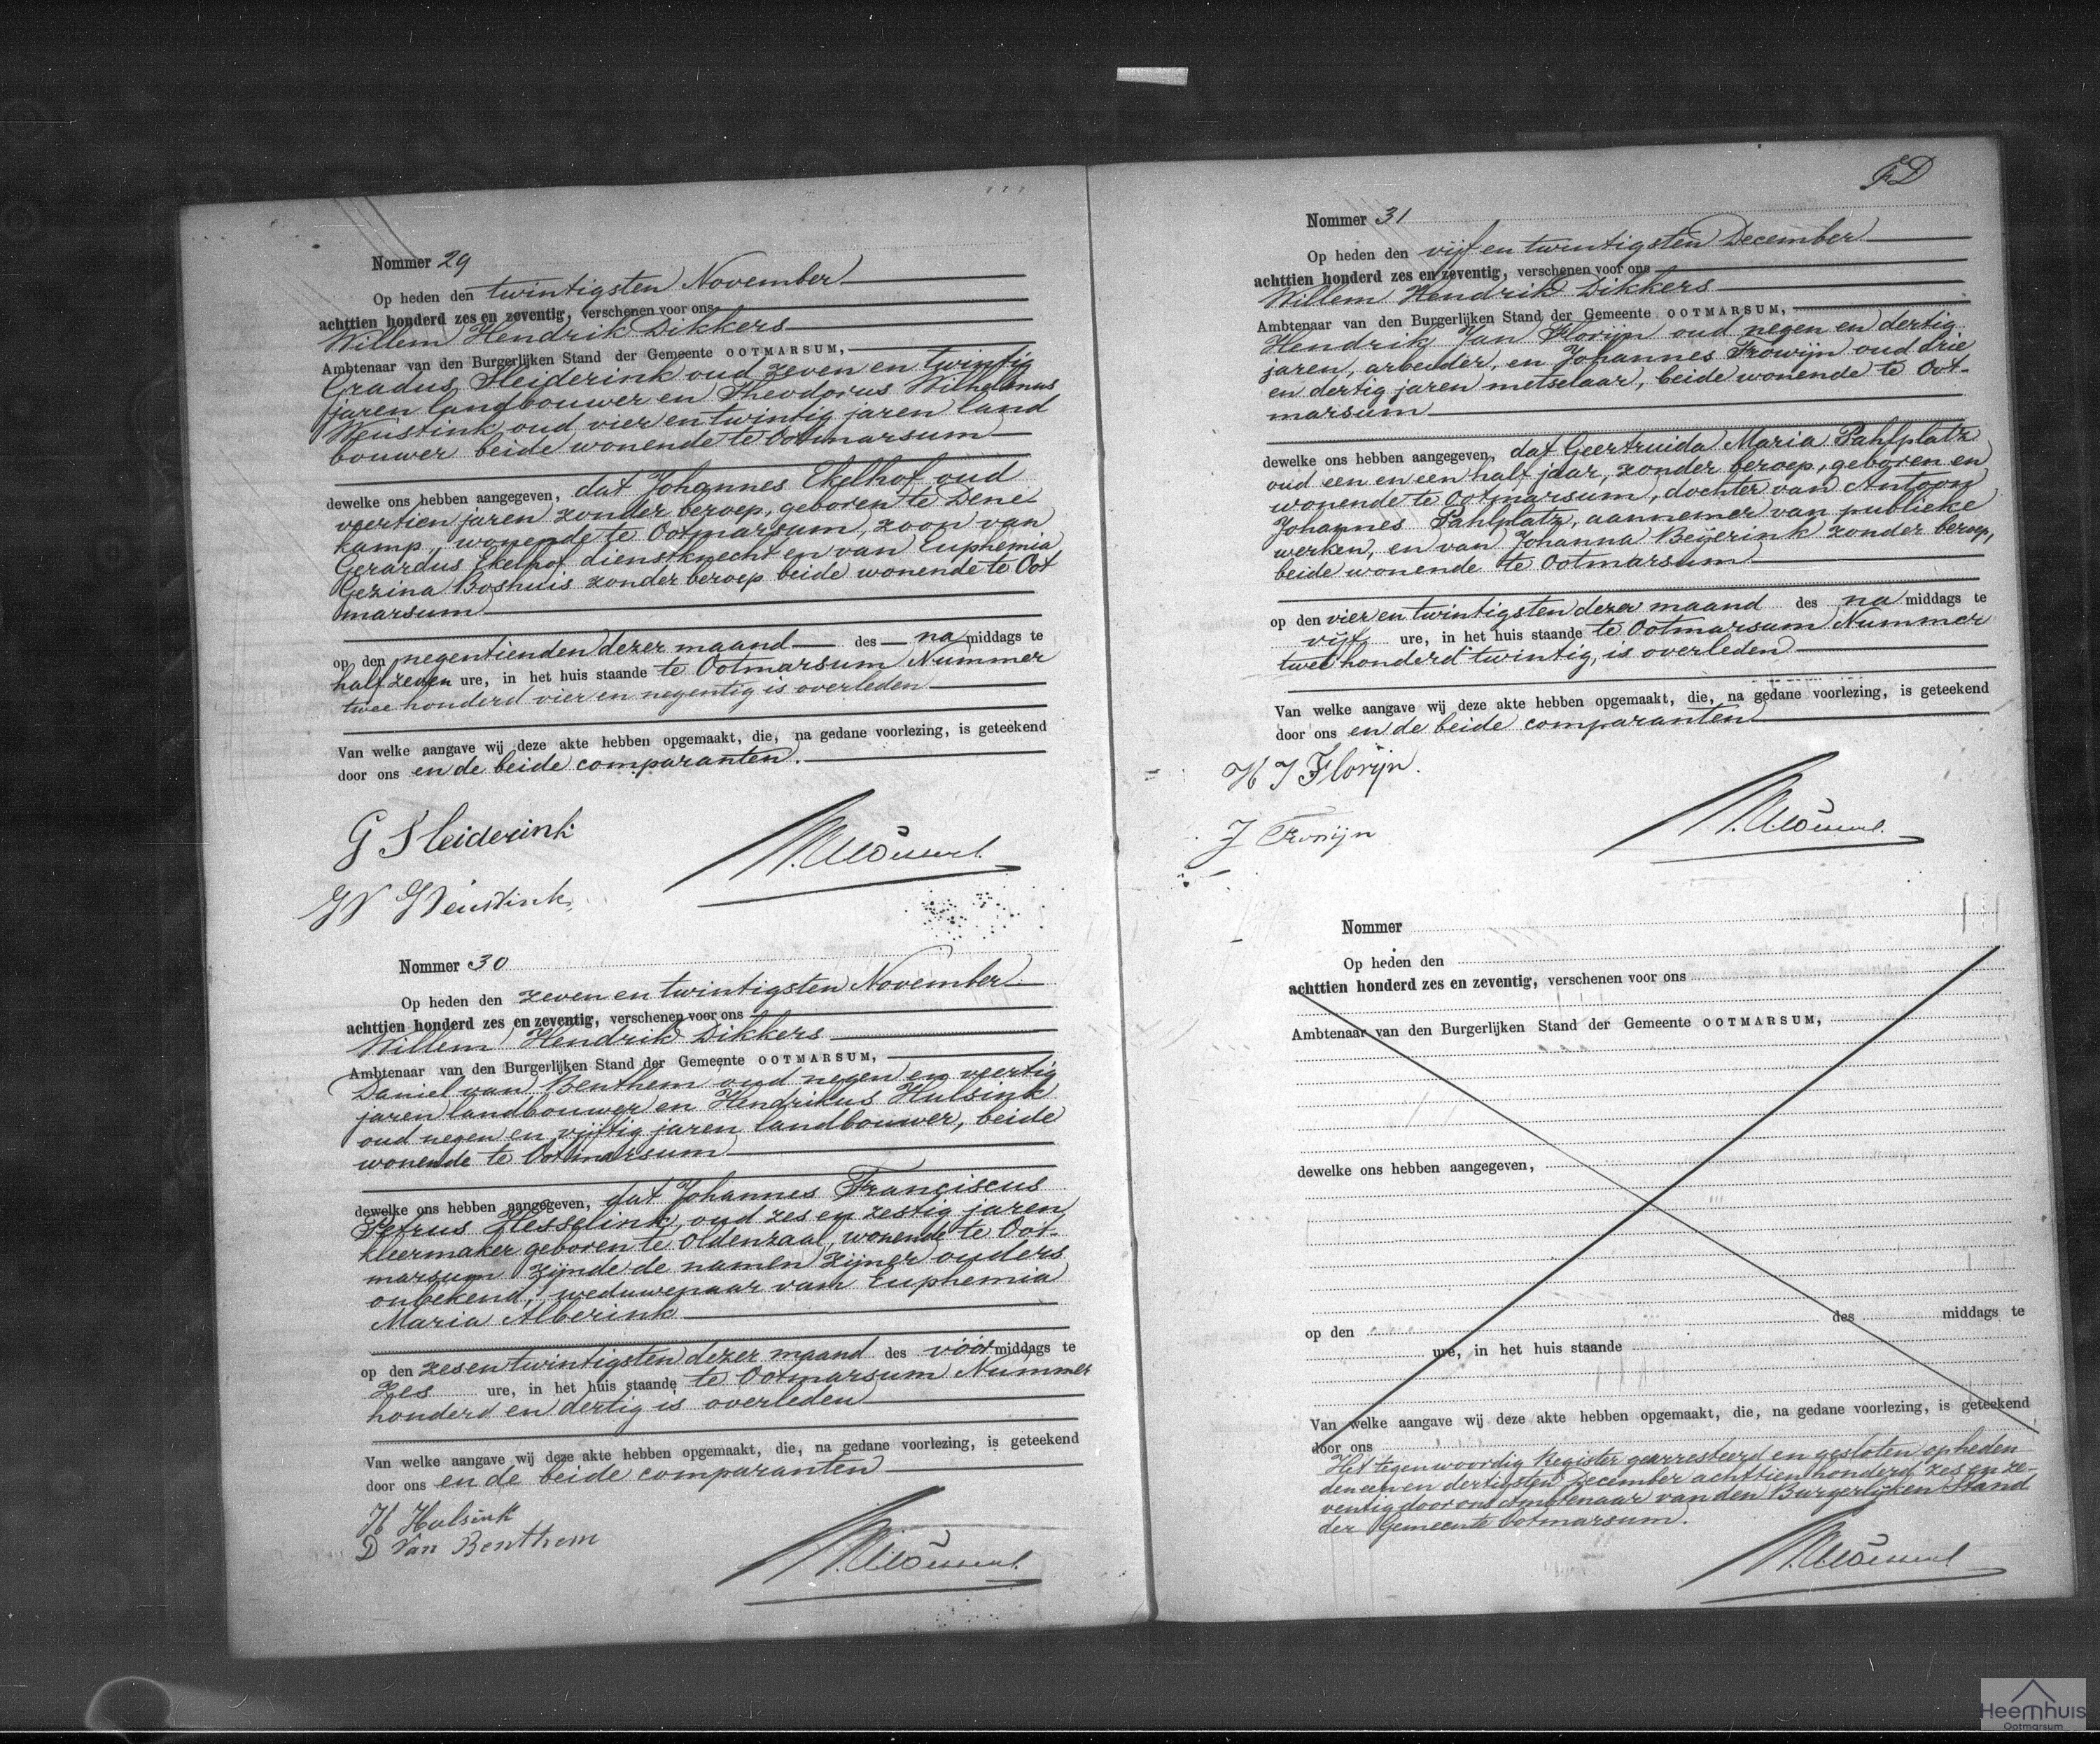 Nommer 29
Op heden den twintigsten November
achttien honderd zes en zeventig, verschenen voor ons
Willem Hendrik Dikkers
Ambtenaar van den Burgerlijken Stand der Gemeente OOTMARSUM,
Gradus Heiderink oud zeven en twintig
jaren landbouwer en Theodorus Wilhelmus
Weustink oud vier en twintig jaren land
bouwer beide wonende te Ootmarsum
dewelke ons hebben aangegeven, dat Johannes Ekelhof oud
veertien jaren zonder beroep, geboren te Dene
kamp, wonende te Ootmarsum, zoon van
Gerardus Ekelhof dienstknecht en van Euphemia
Gezina Boshuis zonder beroep beide wonende te Oot
marsum
op den negentienden dezer maand des na middags te
half zeven ure, in het huis staande te Ootmarsum Nummer
twee honderd vier en negentig is overleden
Van welke aangave wij deze akte hebben opgemaakt, die, na gedane voorlezing, is geteekend
door ons en de beide comparanten.
G Heiderink
W Weustink
Nommer 30
Op heden den zeven en twintigsten November
achttien honderd zes en zeventig, verschenen voor ons
Willem Hendrik Dikkers
Ambtenaar van den Burgerlijken Stand der Gemeente OOTMARSUM,
Daniel van Benthem oud negen en veertig
jaren landbouwer en Hendrikus Hulsink
oud negen en vijftig jaren landbouwer, beide
wonende te Ootmarsum
dewelke ons hebben aangegeven, dat Johannes Franciscus
Petrus Hesselink, oud zes en zestig jaren
kleermaker geboren te Oldenzaal, wonende te Oot-
marsum zijnde de namen zijner ouders
onbekend, weduwenaar van Euphemia
Maria Alberink
op den zesentwintigsten dezer maand des vóór middags te
zes ure, in het huis staande te Ootmarsum Nummer
honderd en dertig is overleden
Van welke aangave wij deze akte hebben opgemaakt, die, na gedane voorlezing, is geteekend
door ons en de beide comparanten
H Hulsink
D Van Benthem
FD
Nommer 31
Op heden den vijf en twintigsten December
achttien honderd zes en zeventig, verschenen voor ons
Willem Hendrik Dikkers
Ambtenaar van den Burgerlijken Stand der Gemeente OOTMARSUM,
Hendrik Jan Florijn oud negen en dertig
jaren, arbeider, en Johannes Frowijn oud drie
en dertig jaren metselaar, beide wonende te Oot-
marsum
dewelke ons hebben aangegeven, dat Geertruida Maria Pahlplatz
oud een en een half jaar, zonder beroep, geboren en
wonende te Ootmarsum, dochter van Antoon
Johannes Pahlplatz, aannemer van publieke
werken, en van Johanna Beijerink zonder beroep,
beide wonende te Ootmarsum
op den vier en twintigsten dezer maand des na middags te
vijf ure, in het huis staande te Ootmarsum Nummer
twee honderd twintig, is overleden
Van welke aangave wij deze akte hebben opgemaakt, die, na gedane voorlezing, is geteekend
door ons en de beide comparanten
H J Florijn.
J Frowijn
Nommer
Op heden den
achttien honderd zes en zeventig, verschenen voor ons
Ambtenaar van den Burgerlijken Stand der Gemeente OOTMARSUM,
dewelke ons hebben aangegeven,
op den des middags te
ure, in het huis staande
Van welke aangave wij deze akte hebben opgemaakt, die, na gedane voorlezing, is geteekend
door ons
Het tegenwoordig Register gearresteerd en gesloten op heden
den een en dertigsten December achttien honderd zes en ze-
ventig door ons Ambtenaar van den Burgerlijken Stand
der Gemeente Ootmarsum.
Heemhuis
Ootmarsum